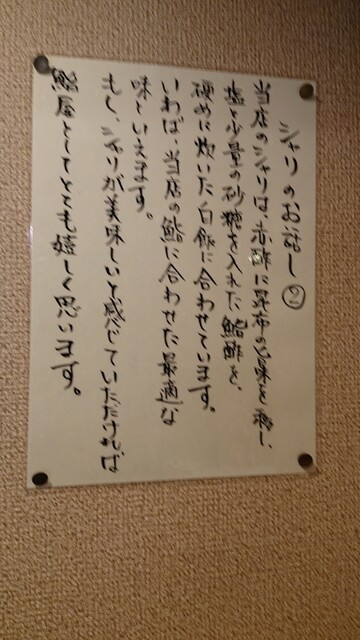 シャリのお話し②
当店のシャリは、赤酢に昆布の旨味を移し、
塩と少量の砂糖を入れた鮨酢を、
硬めに炊いた白飯に合わせています。
いわば、当店の鮨に合わせた最適な
味といえます。
もし、シャリが美味しいと感じていただければ
鮨屋としてとても嬉しく思います。